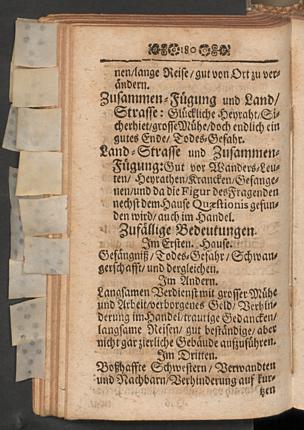 180
nen/lange Reise/gut von Ort zu ver-
ändern.
Zusammen-Fügung und Land/
Strasse: Glückliche Heyraht/Si-
cherhiet/grosse Mühe/doch endlich ein
gutes Ende/Todes-Gefahr.
Land-Strasse und Zusammen-
Fügung: Gut vor Wanders-Leu-
ten/Heyrathen/Krancken/Gefange-
nen/und da die Figur des Fragenden
nechst dem Hause Quæstionis gefun-
den wird/auch im Handel.
Zufällige Bedeutungen.
Im Ersten. Hause.
Gefängniß/Todes-Gefahr/Schwan-
gerschafft/und dergleichen.
Im Andern.
Langsamen Verdienst mit grosser Mühe
und Arbeit/verborgenes Geld/Verhin-
derung im Handel/traurige Gedancken/
langsame Reisen/gut beständige/aber
nicht gar zierliche Gebäude aufzuführen.
Im Dritten.
Boßhaffte Schwestern/Verwandten
und Nachbarn/Verhinderung auf kur-
tzen